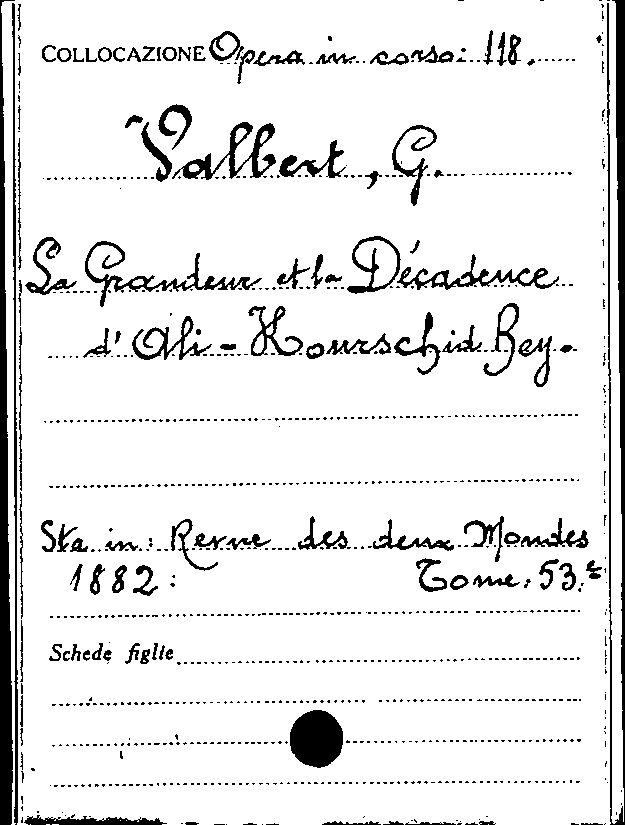 COLLOCAZIONE Opera in corso: 118.
Valbert, G.
La Grandeur et la Décadence
d'Ali-Kourschid Bey.
Sta in: Revue des deux Mondes
1882: Tome. 53.e
Schede figlie